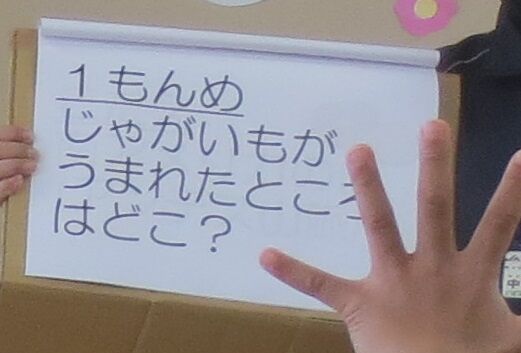 １もんめ
じゃがいもが
うまれたところ
はどこ？
中